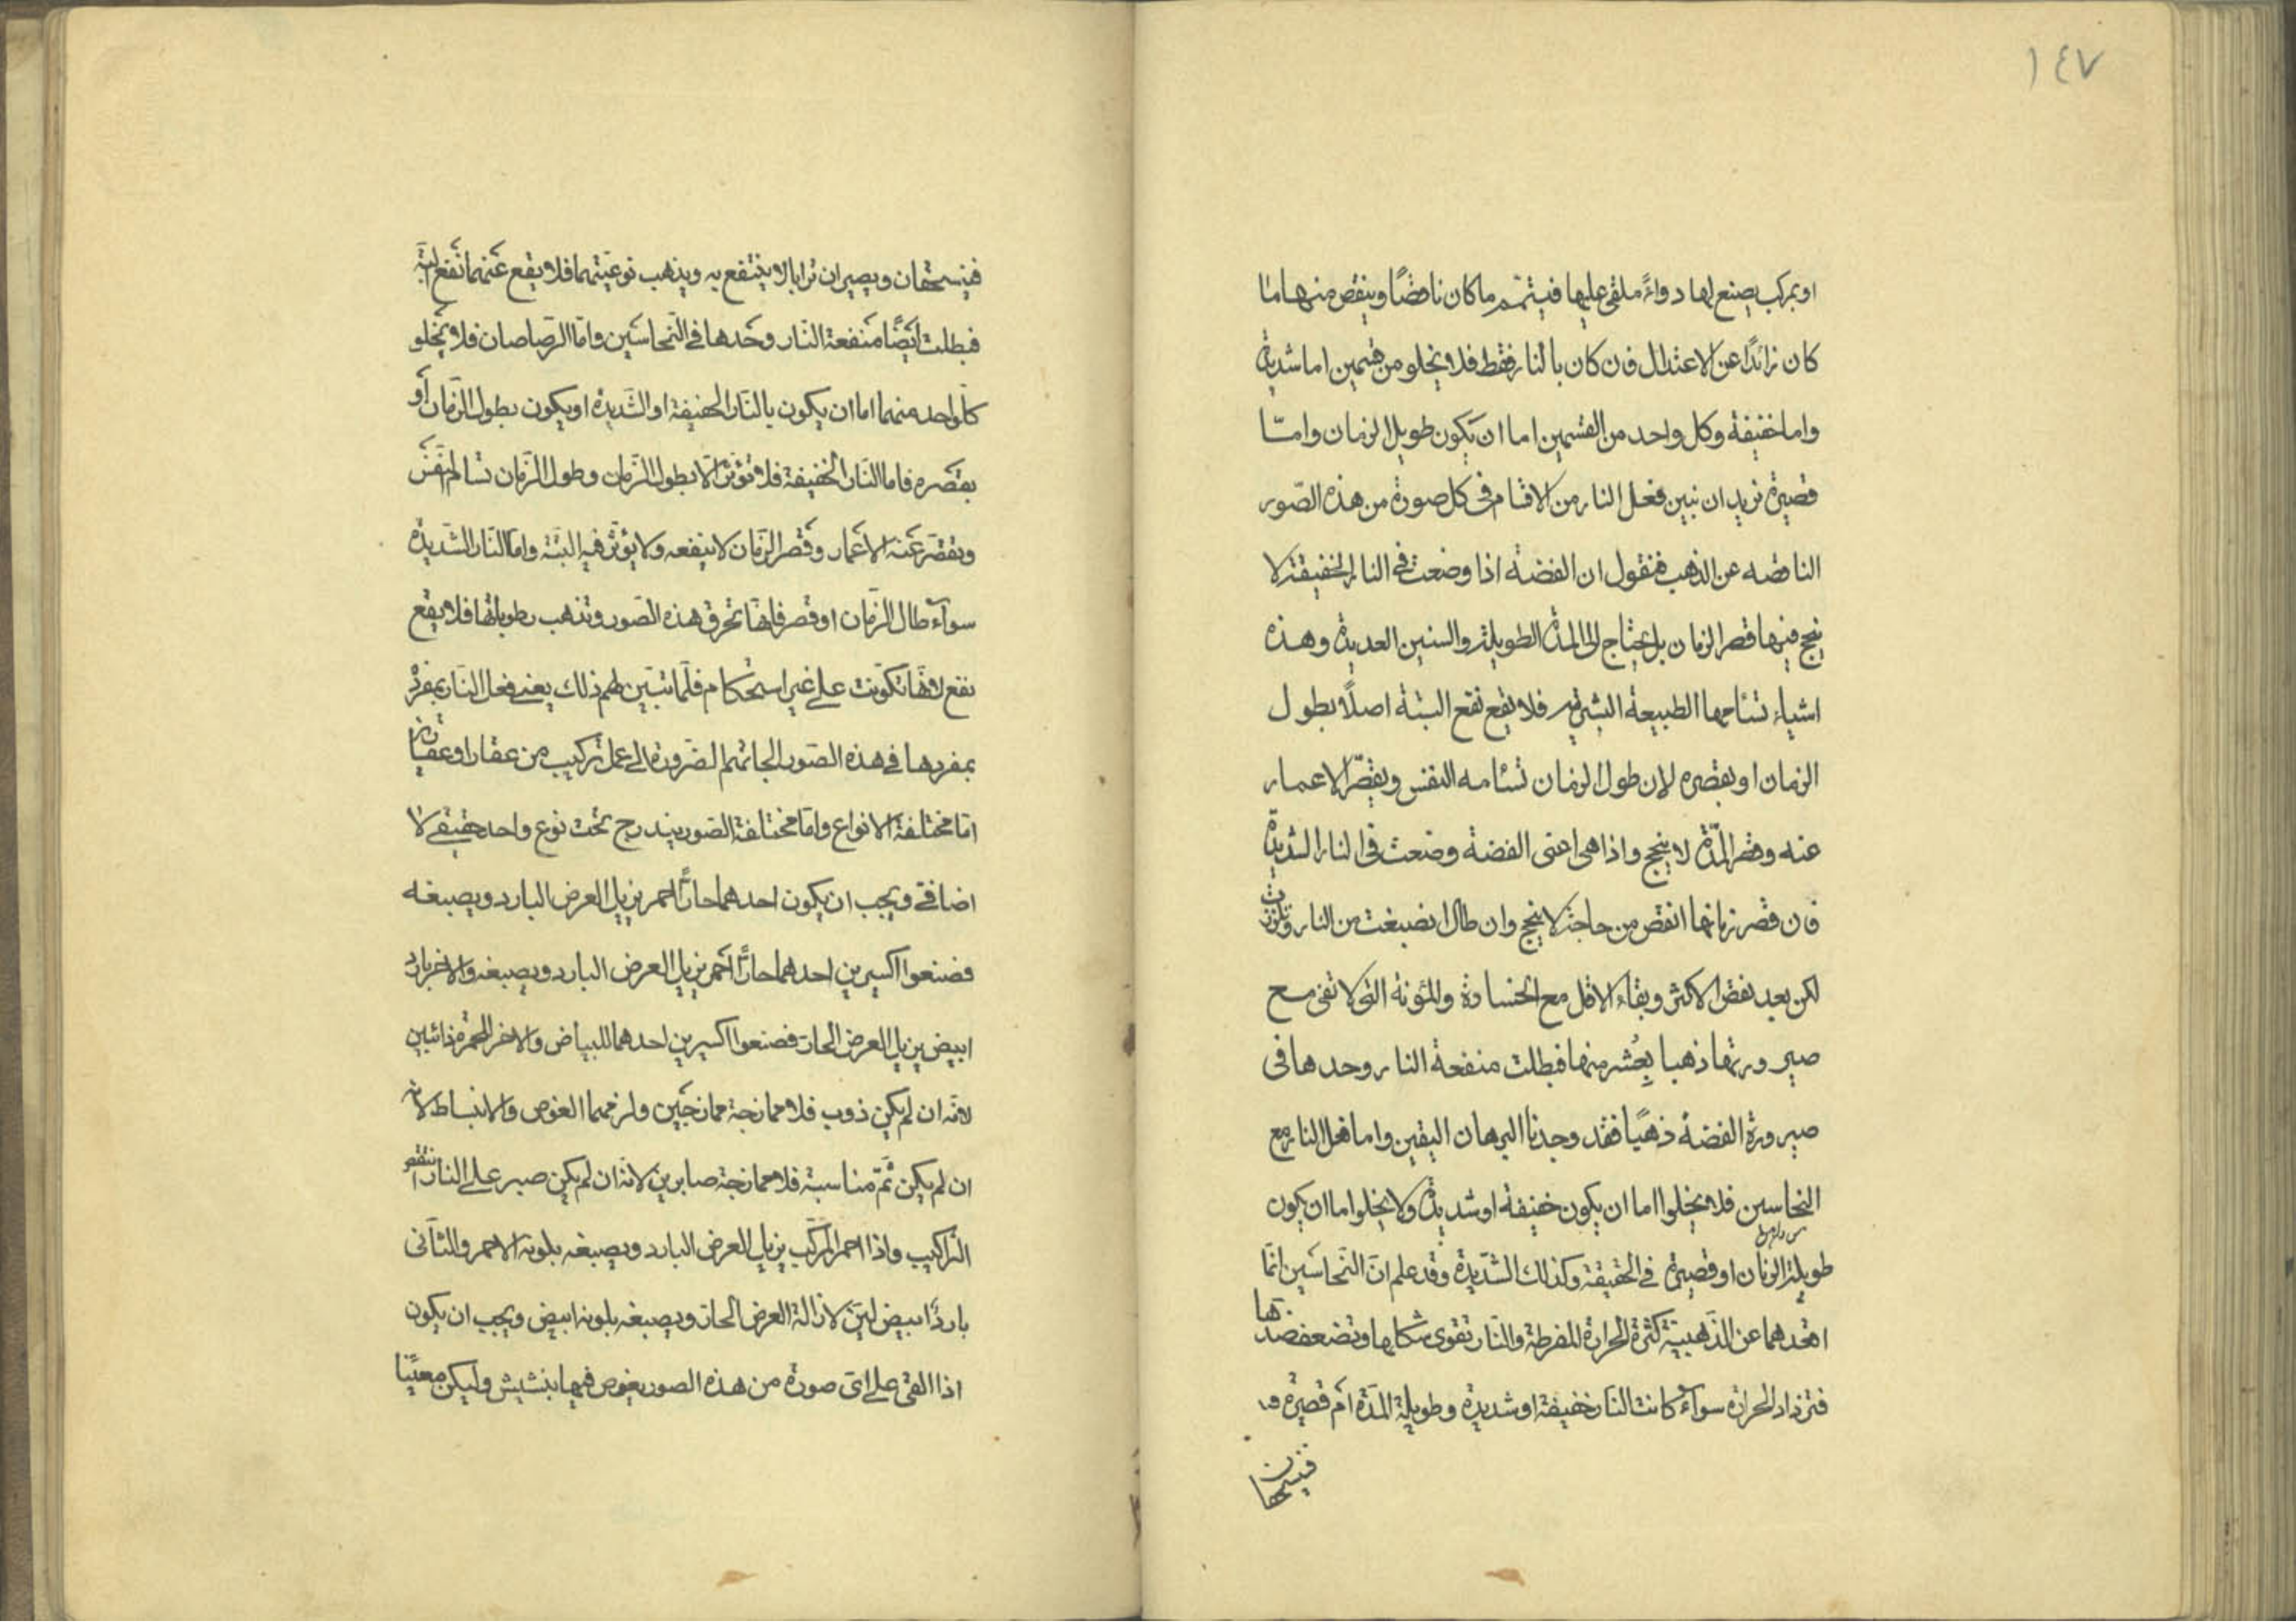 ١٤٧
او بمركب يصنع لها دواءً ملقى عليها فيتمّم ما كان ناقصًا وينقص منها ما
كان زائدًا عن الاعتدال فان كان بالنار فقط فلا يخلو من قسمين اما شديدة
واما خفيفة وكل واحد من القسمين اما ان يكون طويل الزمان وامّا
قصيرة نريد ان نبين فعل النار من الاقسام في كل صورة من هذه الصّور
الناقصه عن الذهب فنقول ان الفضة اذا وضعت في النار الخفيفة لا
ينجح فيها قصر الزمان بل يحتاج الى المدة الطويلة والسنين العديدة وهذه
اشياء تسامها الطبيعة البشرية فلا يقع نفع البتة اصلًا بطول
الزمان او بقصره لان طول الزمان تسامه النفس ويقصّر الاعمار
عنه وقصر المدّة لا ينجح واذا هي اعني الفضة وضعت في النار الشديدة
فان قصر زمانها انقص من حاجته لا ينجح وان طال انصبغت من النار وتلونت
لكن بعد نقض الاكثر وبقاء الاقل مع الخسارة والمؤنة التي لا تفي مع
صيرورتها ذهبا بِعُشر منها فبطلت منفعة النار وحدها في
صيرورة الفضة ذهبًا فقد وجدنا البرهان اليقين واما فعل النار مع
النحاسين فلا يخلوا اما ان يكون خفيفة او شديدة ولا يخلوا اما ان يكون
طويلة الزمان او قصيرة في الحقيقة وكذلك الشّديدة وقد علم انّ النّحاسين انّما
اقعدهما عن الذّهبيّة كثرة الحرارة المفرطة والنّار تقوى شكلها وتضعف ضدّها
فتزداد الحرارة سوآء كانت النّار خفيفة او شديدة وطويلة المدّة أم قصيرة
فينسحقان
فينسحقان ويصيران ترابا لا ينتفع به ويذهب نوعيّتهما فلا يقع عنهما نفع البتّة
فبطلت ايضًا منفعة النّار وحدها في النّحاسين وامّا الرّصاصان فلا يخلو
كلّ واحد منهما اما ان يكون بالنّار الخفيفة او الشّديدة او يكون بطول الزّمان أو
بقصره فاما النّار الخفيفة فلا تؤثّر الّا بطول الزّمان وطول الزّمان تسالم النفس
وتقصّر عنه الاعمار وقصر الزّمان لا ينفعه ولا يؤثّر فيه البتّة وامّا النّار الشّديدة
سوآء طال الزّمان او قصر فانّها تحرق هذه الصّور وتذهب رطوباتها فلا يقع
نفع لانّها تكوّنت على غير استحكام فلمّا تبيّن لهم ذلك يعنى فعل النّار بمفرد
بمفردها في هذه الصّور الجاتهم الضّرورة الى عمل تركيب من عقار او عقارين
امّا مختلفة الانواع وامّا مختلفة الصّور يندرج تحت نوع واحد حقيقي لا
اضافي ويجب ان يكون احدهما حارًّا احمر يزيل العرض البارد ويصبغه
فصنعوا اكسيرين احدهما حارًّا احمر يزيل العرض البارد ويصبغه والاخر بارد
ابيض يزيل العرض الحارّ فصنعوا اكسيرين احدهما للبياض والاخر للحمرة ذائبين
لانّه ان لم يكن ذوب فلا ممازجة ممازجين ولزمهما الغوص والانبساط لانّه
ان لم يكن ثمّ مناسبة فلا ممازجة صابرين لانّه ان لم يكن صبر على النار انتقض
التّركيب واذا احمر المركّب يزيل العرض البارد ويصبغه بلونه الاحمر والثّاني
باردًا ابيض ليّن لازالة العرض الحارّ ويصبغه بلونه ابيض ويجب ان يكون
اذا القي على اىّ صورة من هذه الصور يغوص فيها بنشيش وليكن معيّنا